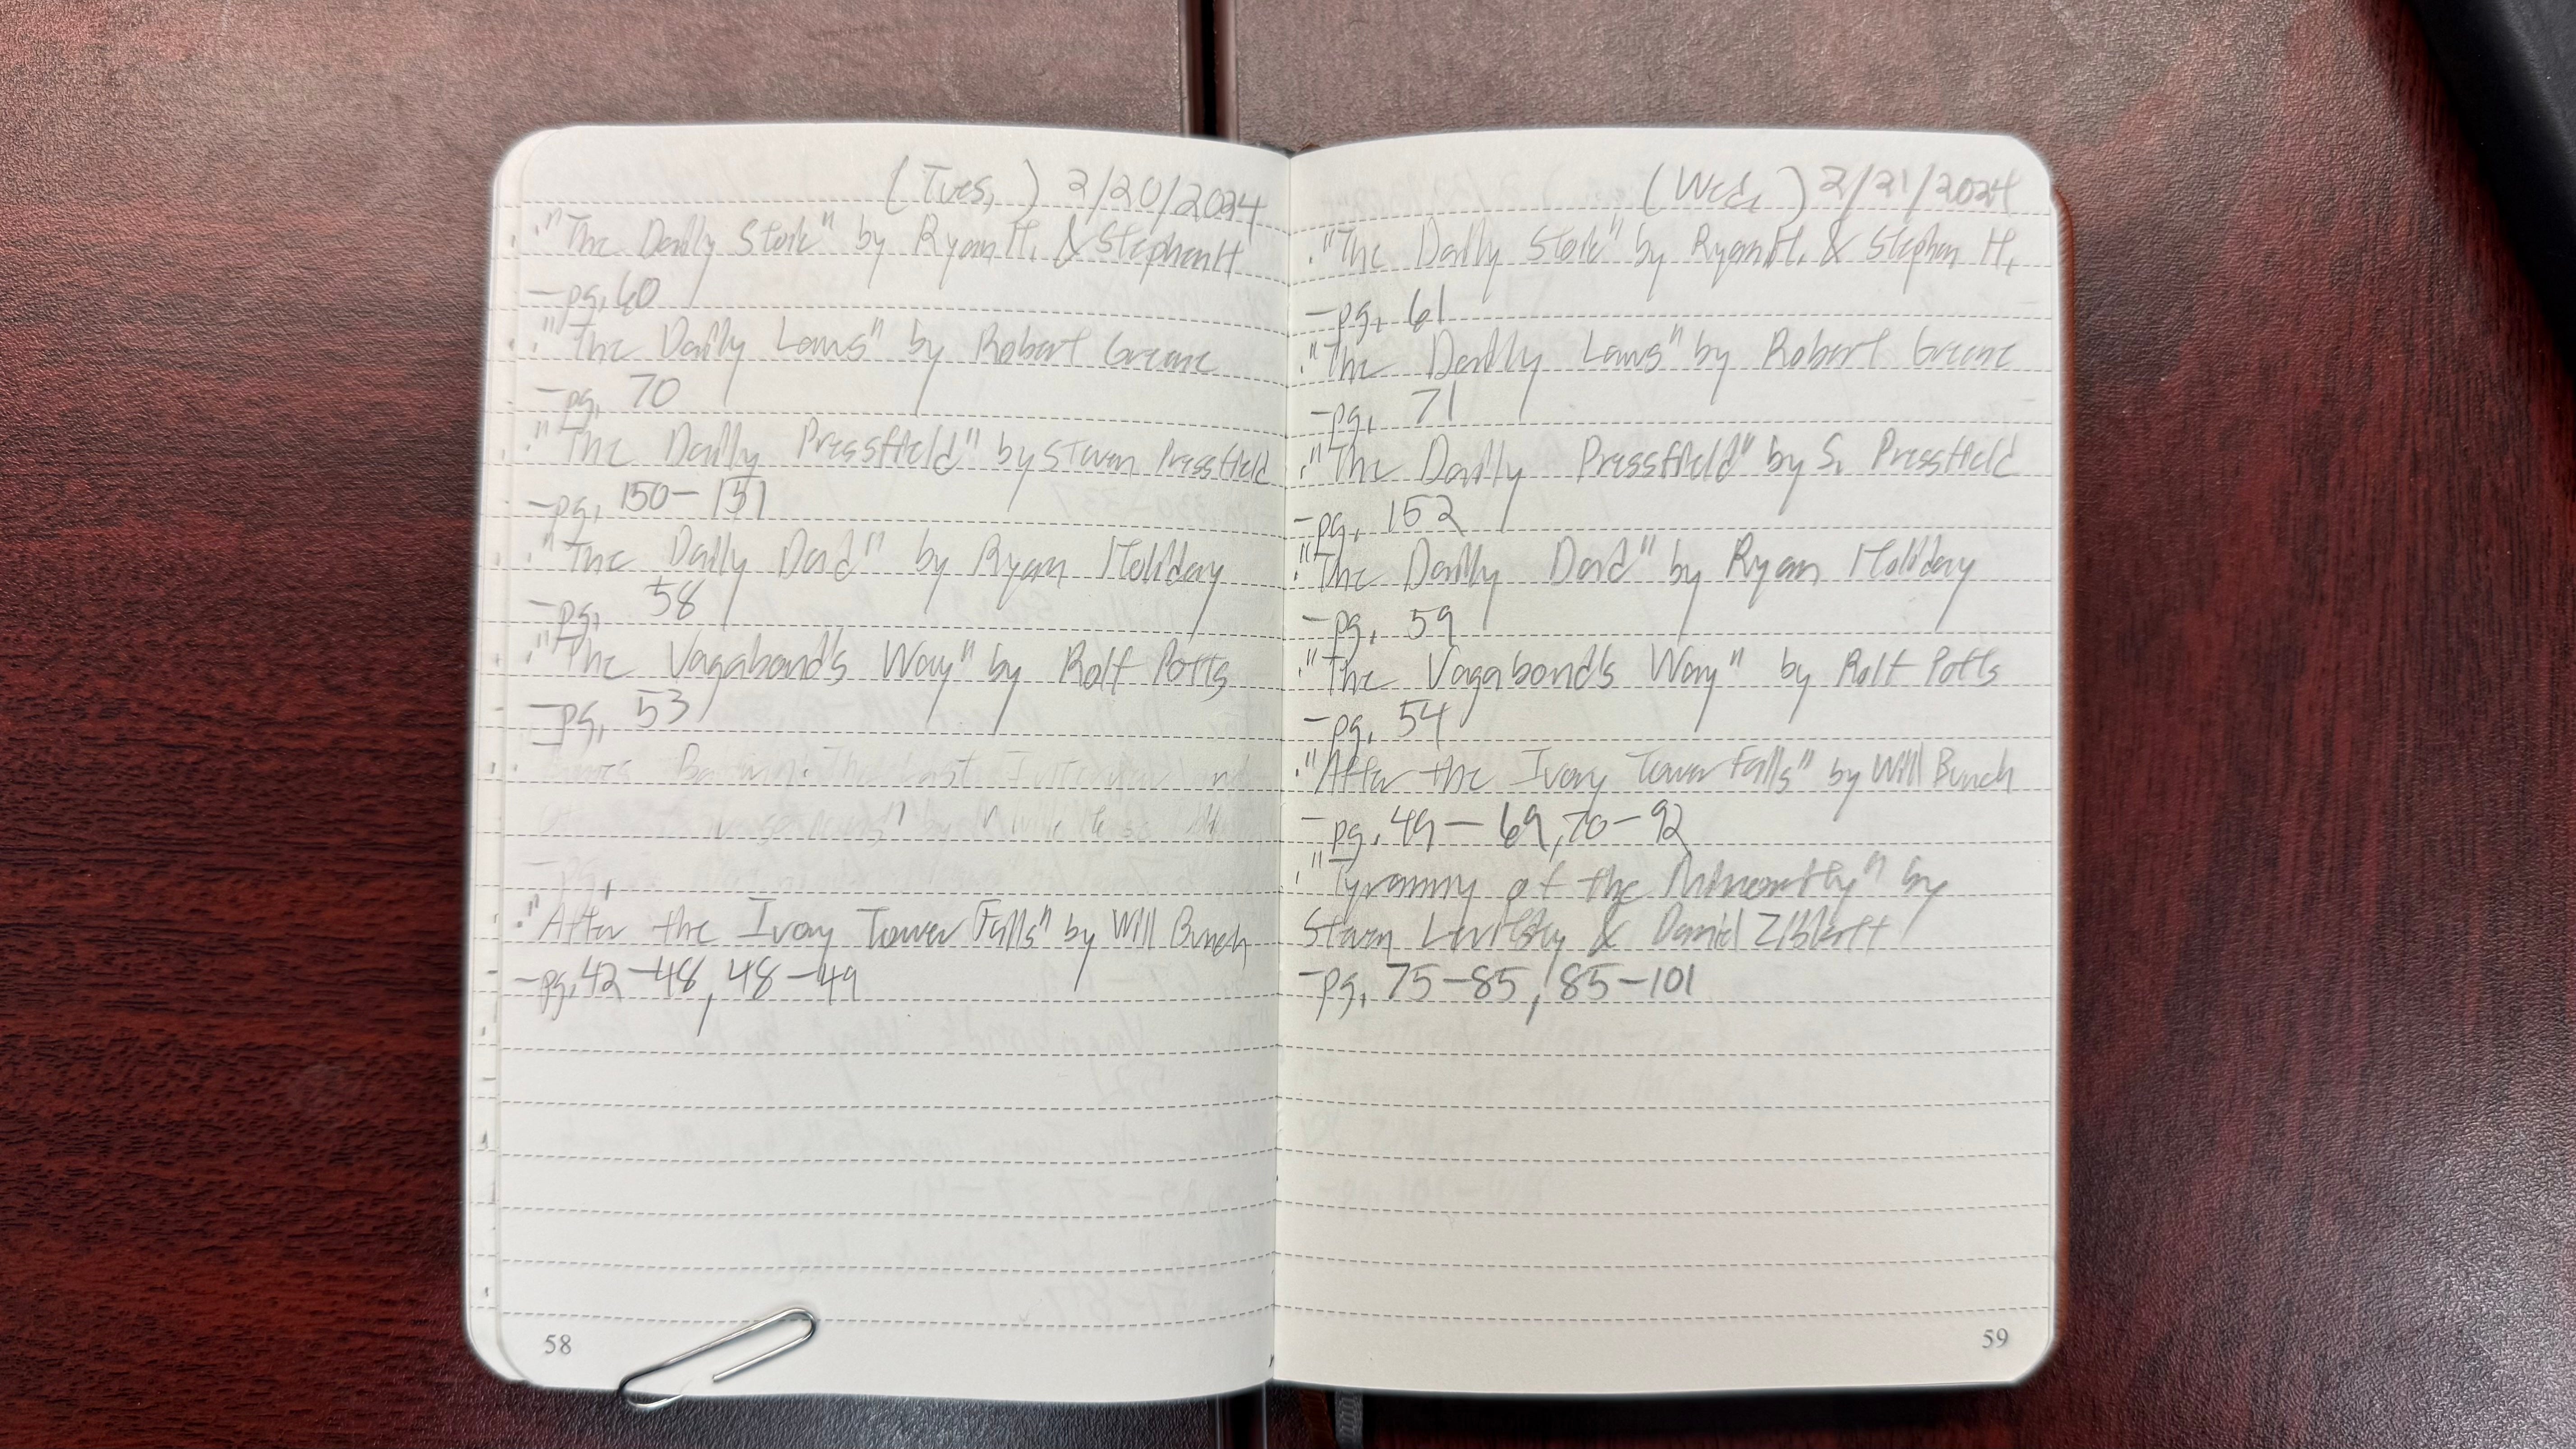 (Tues,) 2/20/2024
."The Daily Stoic" by Ryan H. & Stephen H
-pg, 60
."The Daily Laws" by Robert Greene
-pg, 70
."The Daily Pressfield" by Steven Pressfield
-pg, 150-151
."The Daily Dad" by Ryan Holiday
-pg, 58
."The Vagabond's Way" by Rolf Potts
-pg, 53
The Last Interview and
-pg,
."After the Ivory Tower Falls" by Will Bunch
-pg, 42-48, 48-49
58
(Wed,) 2/21/2024
."The Daily Stoic" by Ryan H. & Stephen H,
-pg, 61
."The Daily Laws" by Robert Greene
-pg, 71
."The Daily Pressfield" by S. Pressfield
-pg, 152
."The Daily Dad" by Ryan Holiday
-pg, 59
."The Vagabond's Way" by Rolf Potts
-pg, 54
."After the Ivory Tower Falls" by Will Bunch
-pg. 49-69, 70-92
."Tyranny of the Minority" by
Steven Levitsky & Daniel Ziblatt
-pg, 75-85, 85-101
59